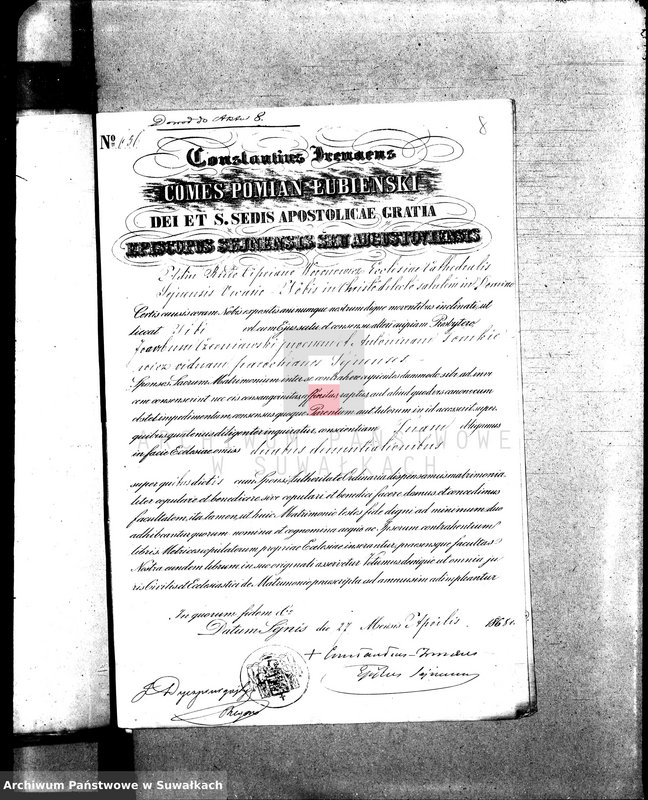 Dowod do Aktu 8.
8
Nº
Constantius Irenaeus
COMES POMIAN ŁUBIEŃSKI
DEI ET S. SEDIS APOSTOLICAE GRATIA
EPISCOPUS SEJNENSIS SEU AUGUSTOVIENSIS
Cipriano Ecclesiae Cathedralis
Sejnensis Nobis in Christo dilecto salutem in Domino
Certis causis coram Nobis expositis animumque nostrum digne moventibus inclinati, ut
liceat Tibi vel cum Ejus scitu et consensu alteri cuipiam Presbytero,
Czerniawski Antoninam
viduam parochianos Sejnenses
Sponsos, Sacrum Matrimonium inter se contrahere cupientes, dummodo sibi ad invicem
consenserint nec eis consanguinitas, affinitas, raptus, aut aliud quodvis canonicum
obstet impedimentum, consensus quoque Parentum, aut tutorum in id accesserit, super
quibus quatenus diligenter inquiratur, conscientiam Tuam obligamus
in facie Ecclesiae omissis duabus denuntiationibus
super quibus dictis cum Sponsis Authoritate Ordinaria dispensamus matrimonia
liter copulare et benedicere sive copulari et benedici facere damus et concedimus
facultatem, ita tamen, ut huic Matrimonio testes fide digni ad minimum duo
adhibeantur quorum nomina et cognomina aeque ac Ipsorum contrahentium
libris Metrices copulatorum propriae Ecclesiae inserantur, praesensque facultas
Nostra eundem librum in suo originali asservetur. Volumus denique ut omnia ju
ris Civilis et Ecclesiastici de Matrimonio praescripta ad amussim adimpleantur
In quorum fidem &c.
Datum Sejnis die 27 Mensis Aprilis 1868 a.
+ Constantius Irenaeus
Eppus Sejnensis
ARCHIWUM PAŃSTWOWE
W SUWAŁKACH
Archiwum Państwowe w Suwałkach